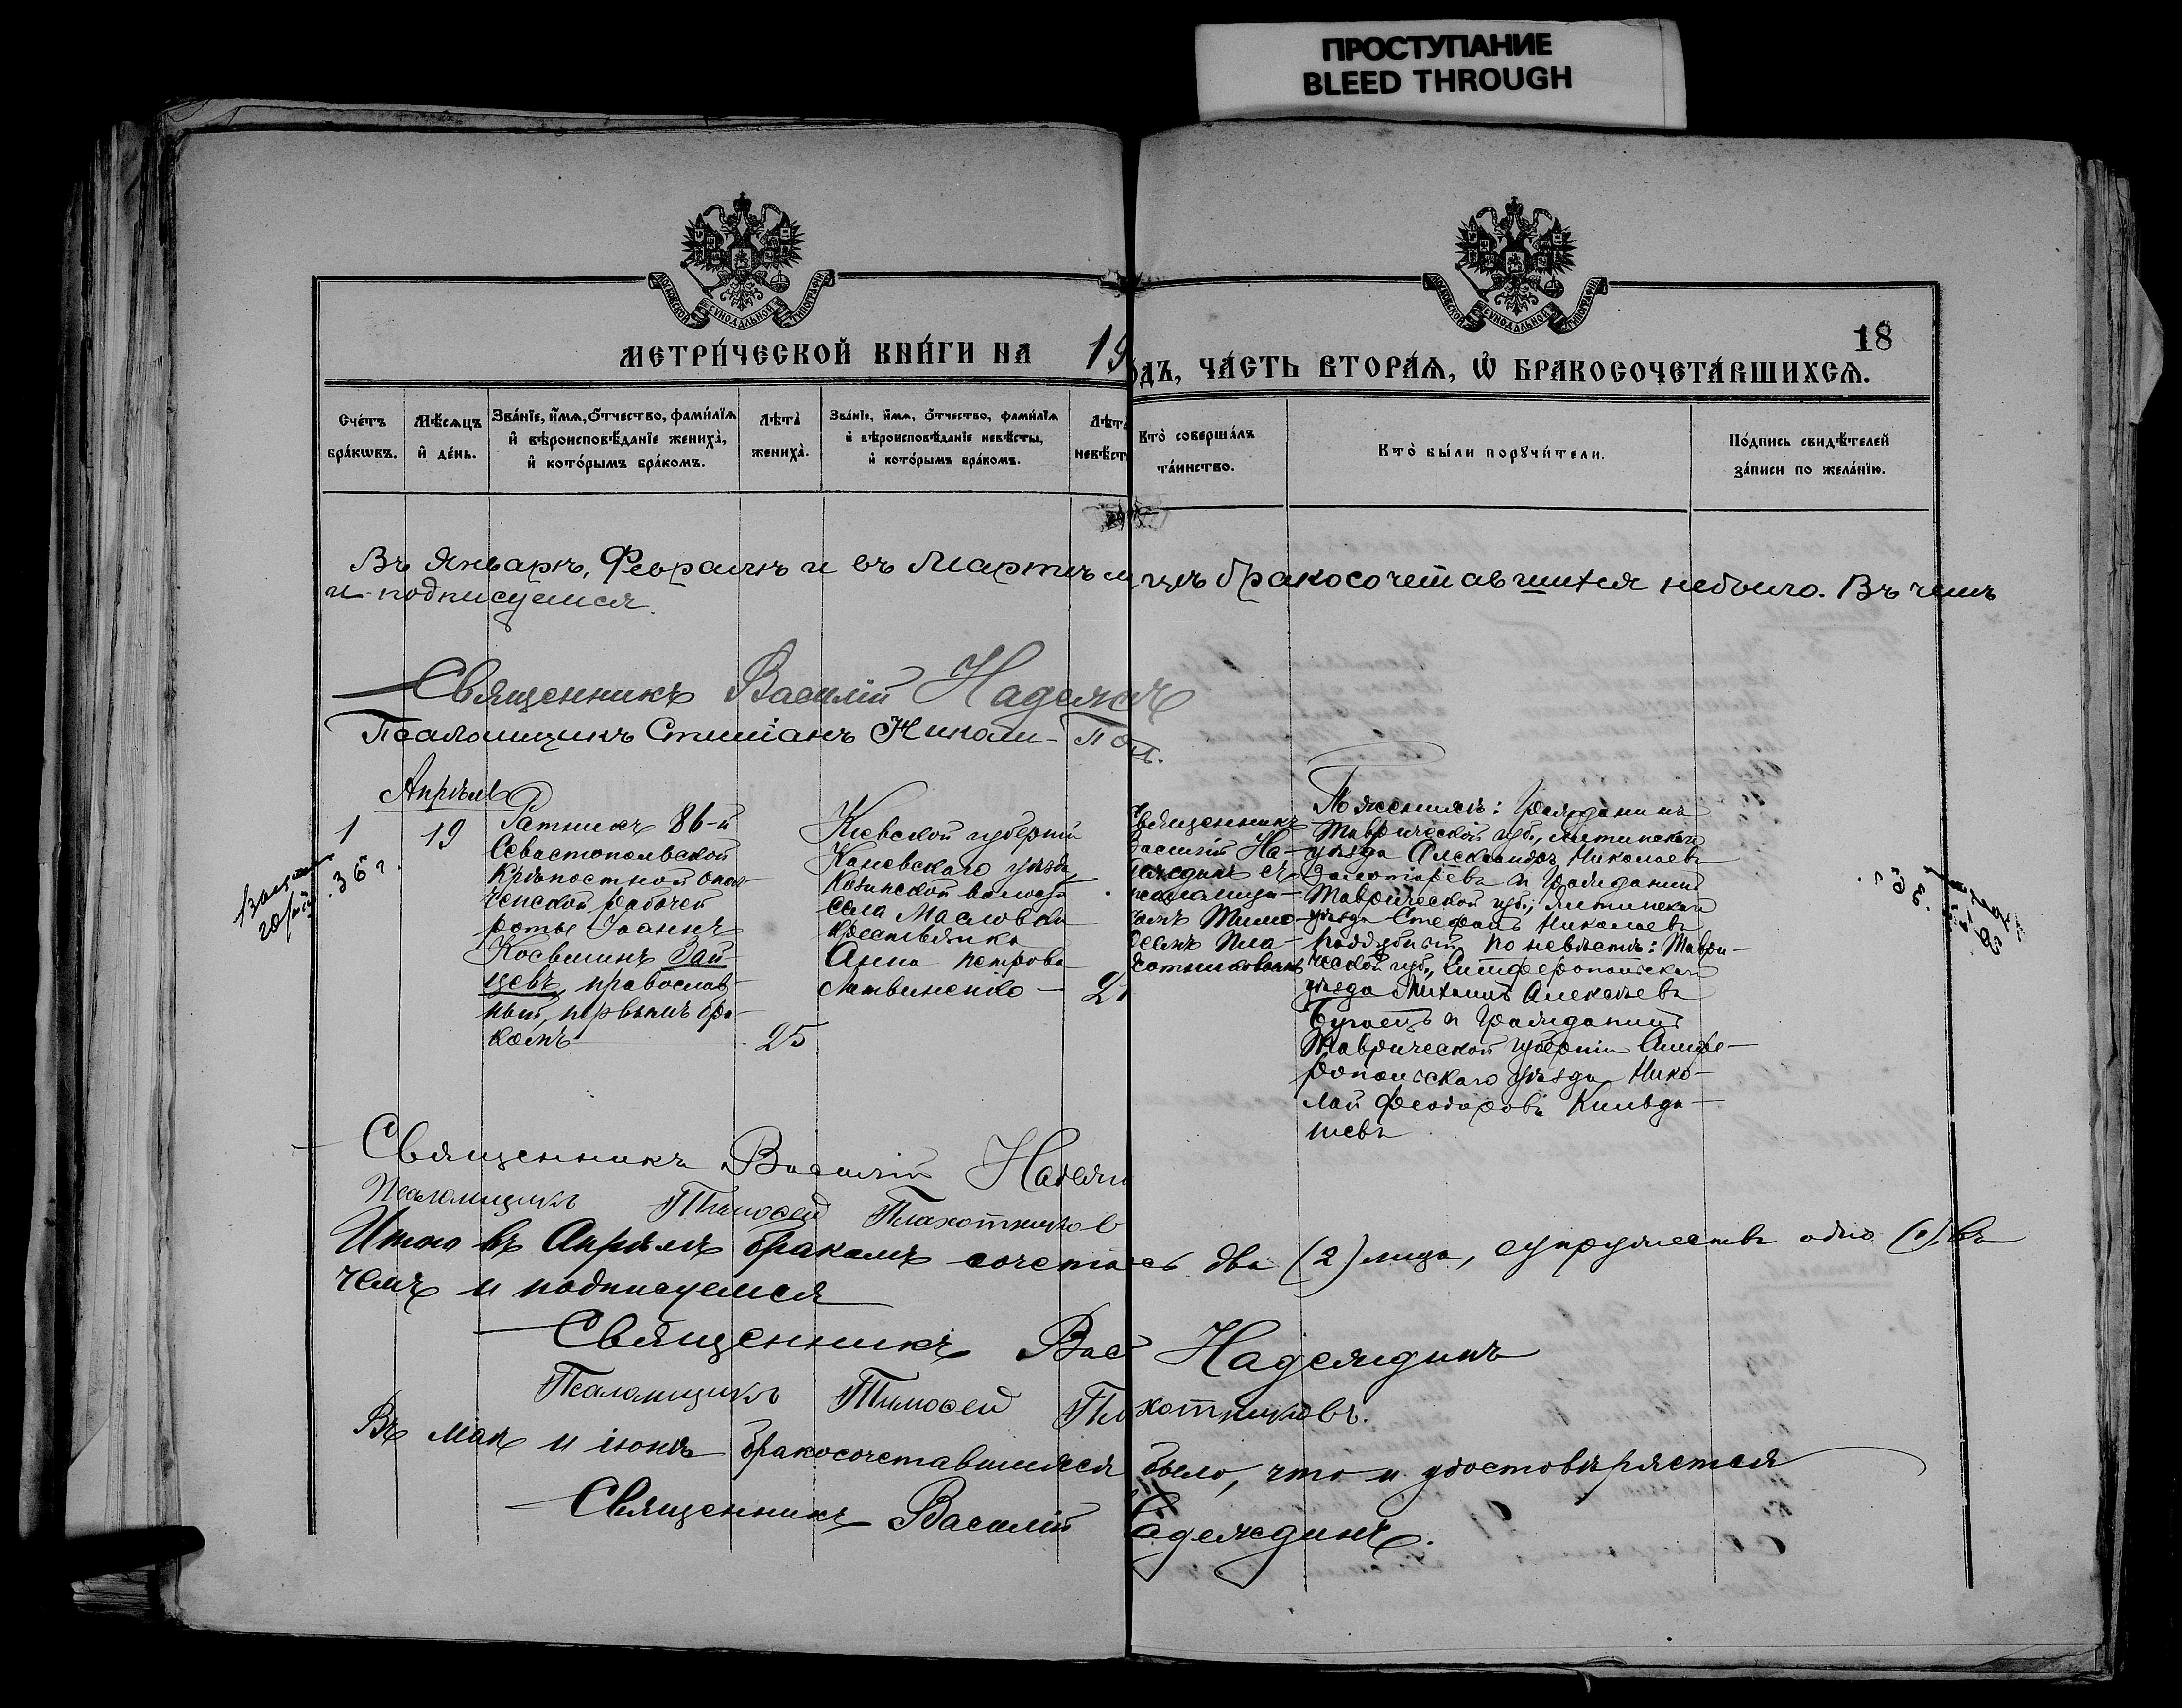 ПРОСТУПАНИЕ
BLEED THROUGH
МОСКОВСКОЙ СѴНОДАЛЬНОЙ ТИПОГРАФІИ
МОСКОВСКОЙ СѴНОДАЛЬНОЙ ТИПОГРАФІИ
18
МЕТРИ́ЧЕСКОЙ КНИ́ГИ НА 19
ДЪ, ЧА́СТЬ ВТОРА́Ѧ, Ѡ҆ БРАКОСОЧЕТА́ВШИХСѦ.
Сче́тъ бра́кѡвъ.
Мѣ́сѧцъ и҆ де́нь.
Зва́нїе, и҆́мѧ, ѻ҆́тчество, фами́лїѧ
и҆ вѣроисповѣ́данїе жениха̀,
и҆ кото́рымъ бра́комъ.
Лѣта̀ жениха̀.
Зва́нїе, и҆́мѧ, ѻ҆́тчество, фами́лїѧ
и҆ вѣроисповѣ́данїе невѣ́сты,
и҆ кото́рымъ бра́комъ.
Лѣта̀
невѣ́ст
Кто̀ соверша́лъ
та́инство.
Кто̀ бы́ли порꙋчи́тели.
По́дпись свидѣ́телей
за́писи по жела́нїю.
Въ Январѣ, Февралѣ и въ Мартѣ м цѣ бракосочетавшихся небыло. Въ чемъ
и подписуемся.
Священникъ Василій Надеж
Псаломщикъ Стилианъ Никола- пол.
Апрѣль
1
19
Ратникъ 86-й
Севастопольской
Крѣпостной опол-
ченской рабочей
роты Іоаннъ
Косьминъ Зай-
цевъ, православ-
ный, первымъ бра-
комъ
25
Кіевской губерніи
Каневскаго уѣзда
Козинской волости
села Масловки
крестьянка
Анна Петрова
Литвиненко
2
Священникъ
Василій На-
деждинъ съ
псаломщи-
комъ Тимо-
феемъ Пла-
хотниковымъ
По женихѣ: Гражданинъ
Таврической губ.,
уѣзда Александръ Николаевъ
Золотаревъ и Гражданинъ
Таврической губ.,
уѣзда Стефанъ Николаевъ
Поддубный по невѣстѣ: Таври-
ческой губ., Симферопольскаго
уѣзда Михаилъ Алексѣевъ
и Гражданинъ
Таврической губерніи Симфе-
ропольскаго уѣзда Нико-
лай Феодоровъ Кильда-
шевъ
36 г.
Священникъ Василій Надежд
Псаломщикъ Тимофей Плахотников
Итого въ Апрѣлѣ бракомъ сочета сь два (2) лица, супружествъ одно (1), въ
чемъ и подписуемся
Священникъ Вас Надеждинъ
Псаломщикъ Тимофей Пла хотниковъ.
Въ маѣ и іюнѣ бракосочетавшихся было, что и удостовѣряется
Священникъ Василій Надеждинъ.